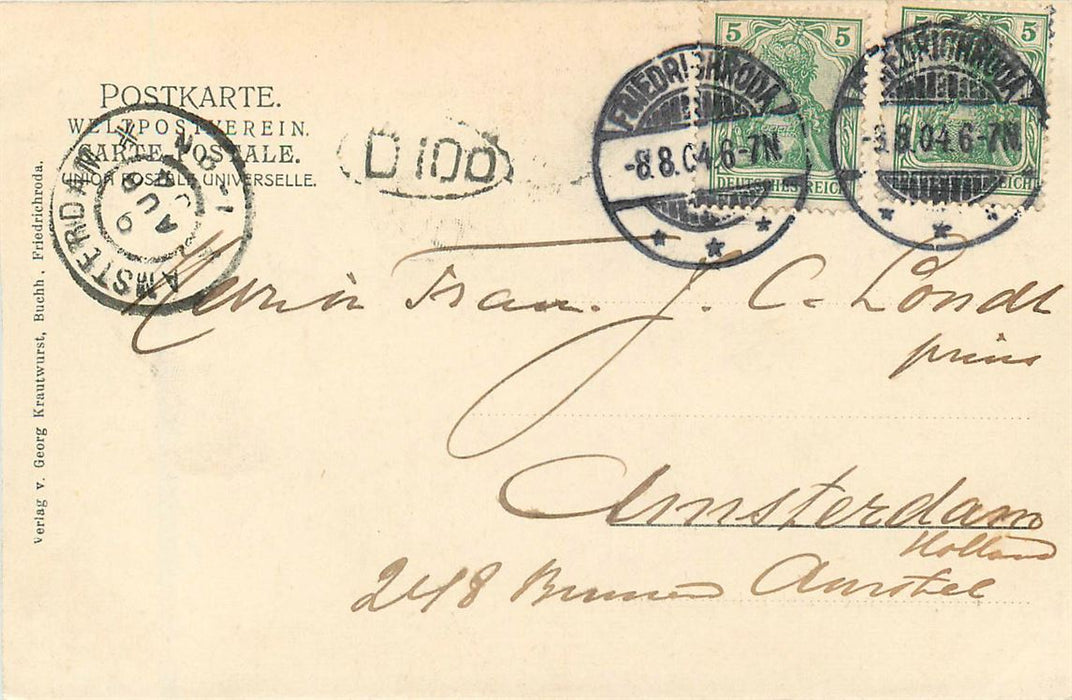 POSTKARTE.
WELTPOSTVEREIN.
CARTE POSTALE.
UNION POSTALE UNIVERSELLE.
AMSTERDAM
9 AUG
D 100
5 5
DEUTSCHES REICH
FRIEDRICHRODA
-8.8.04.6-7N.
5 5
REICH
FRIEDRICHRODA
-8.8.04.6-7N.
Frau. J. C. Londt
Amsterdam
Holland
248 Binnen Amstel
Verlag v. Georg Krautwurst, Buchh., Friedrichroda.